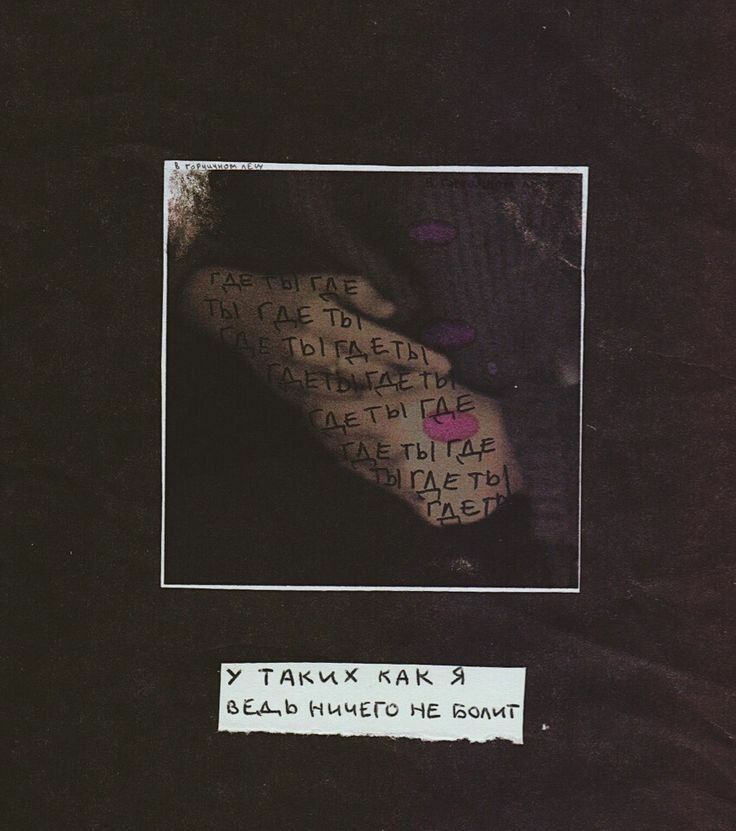 в горчичном лесу
в горчичном лесу
ГДЕ ТЫ ГДЕ
ТЫ ГДЕ ТЫ
ГДЕ ТЫ ГДЕ ТЫ
ГДЕ ТЫ ГДЕ ТЫ
ГДЕ ТЫ ГДЕ
ГДЕ ТЫ ГДЕ
ТЫ ГДЕ ТЫ
ГДЕ ТЫ
У ТАКИХ КАК Я
ВЕДЬ НИЧЕГО НЕ БОЛИТ